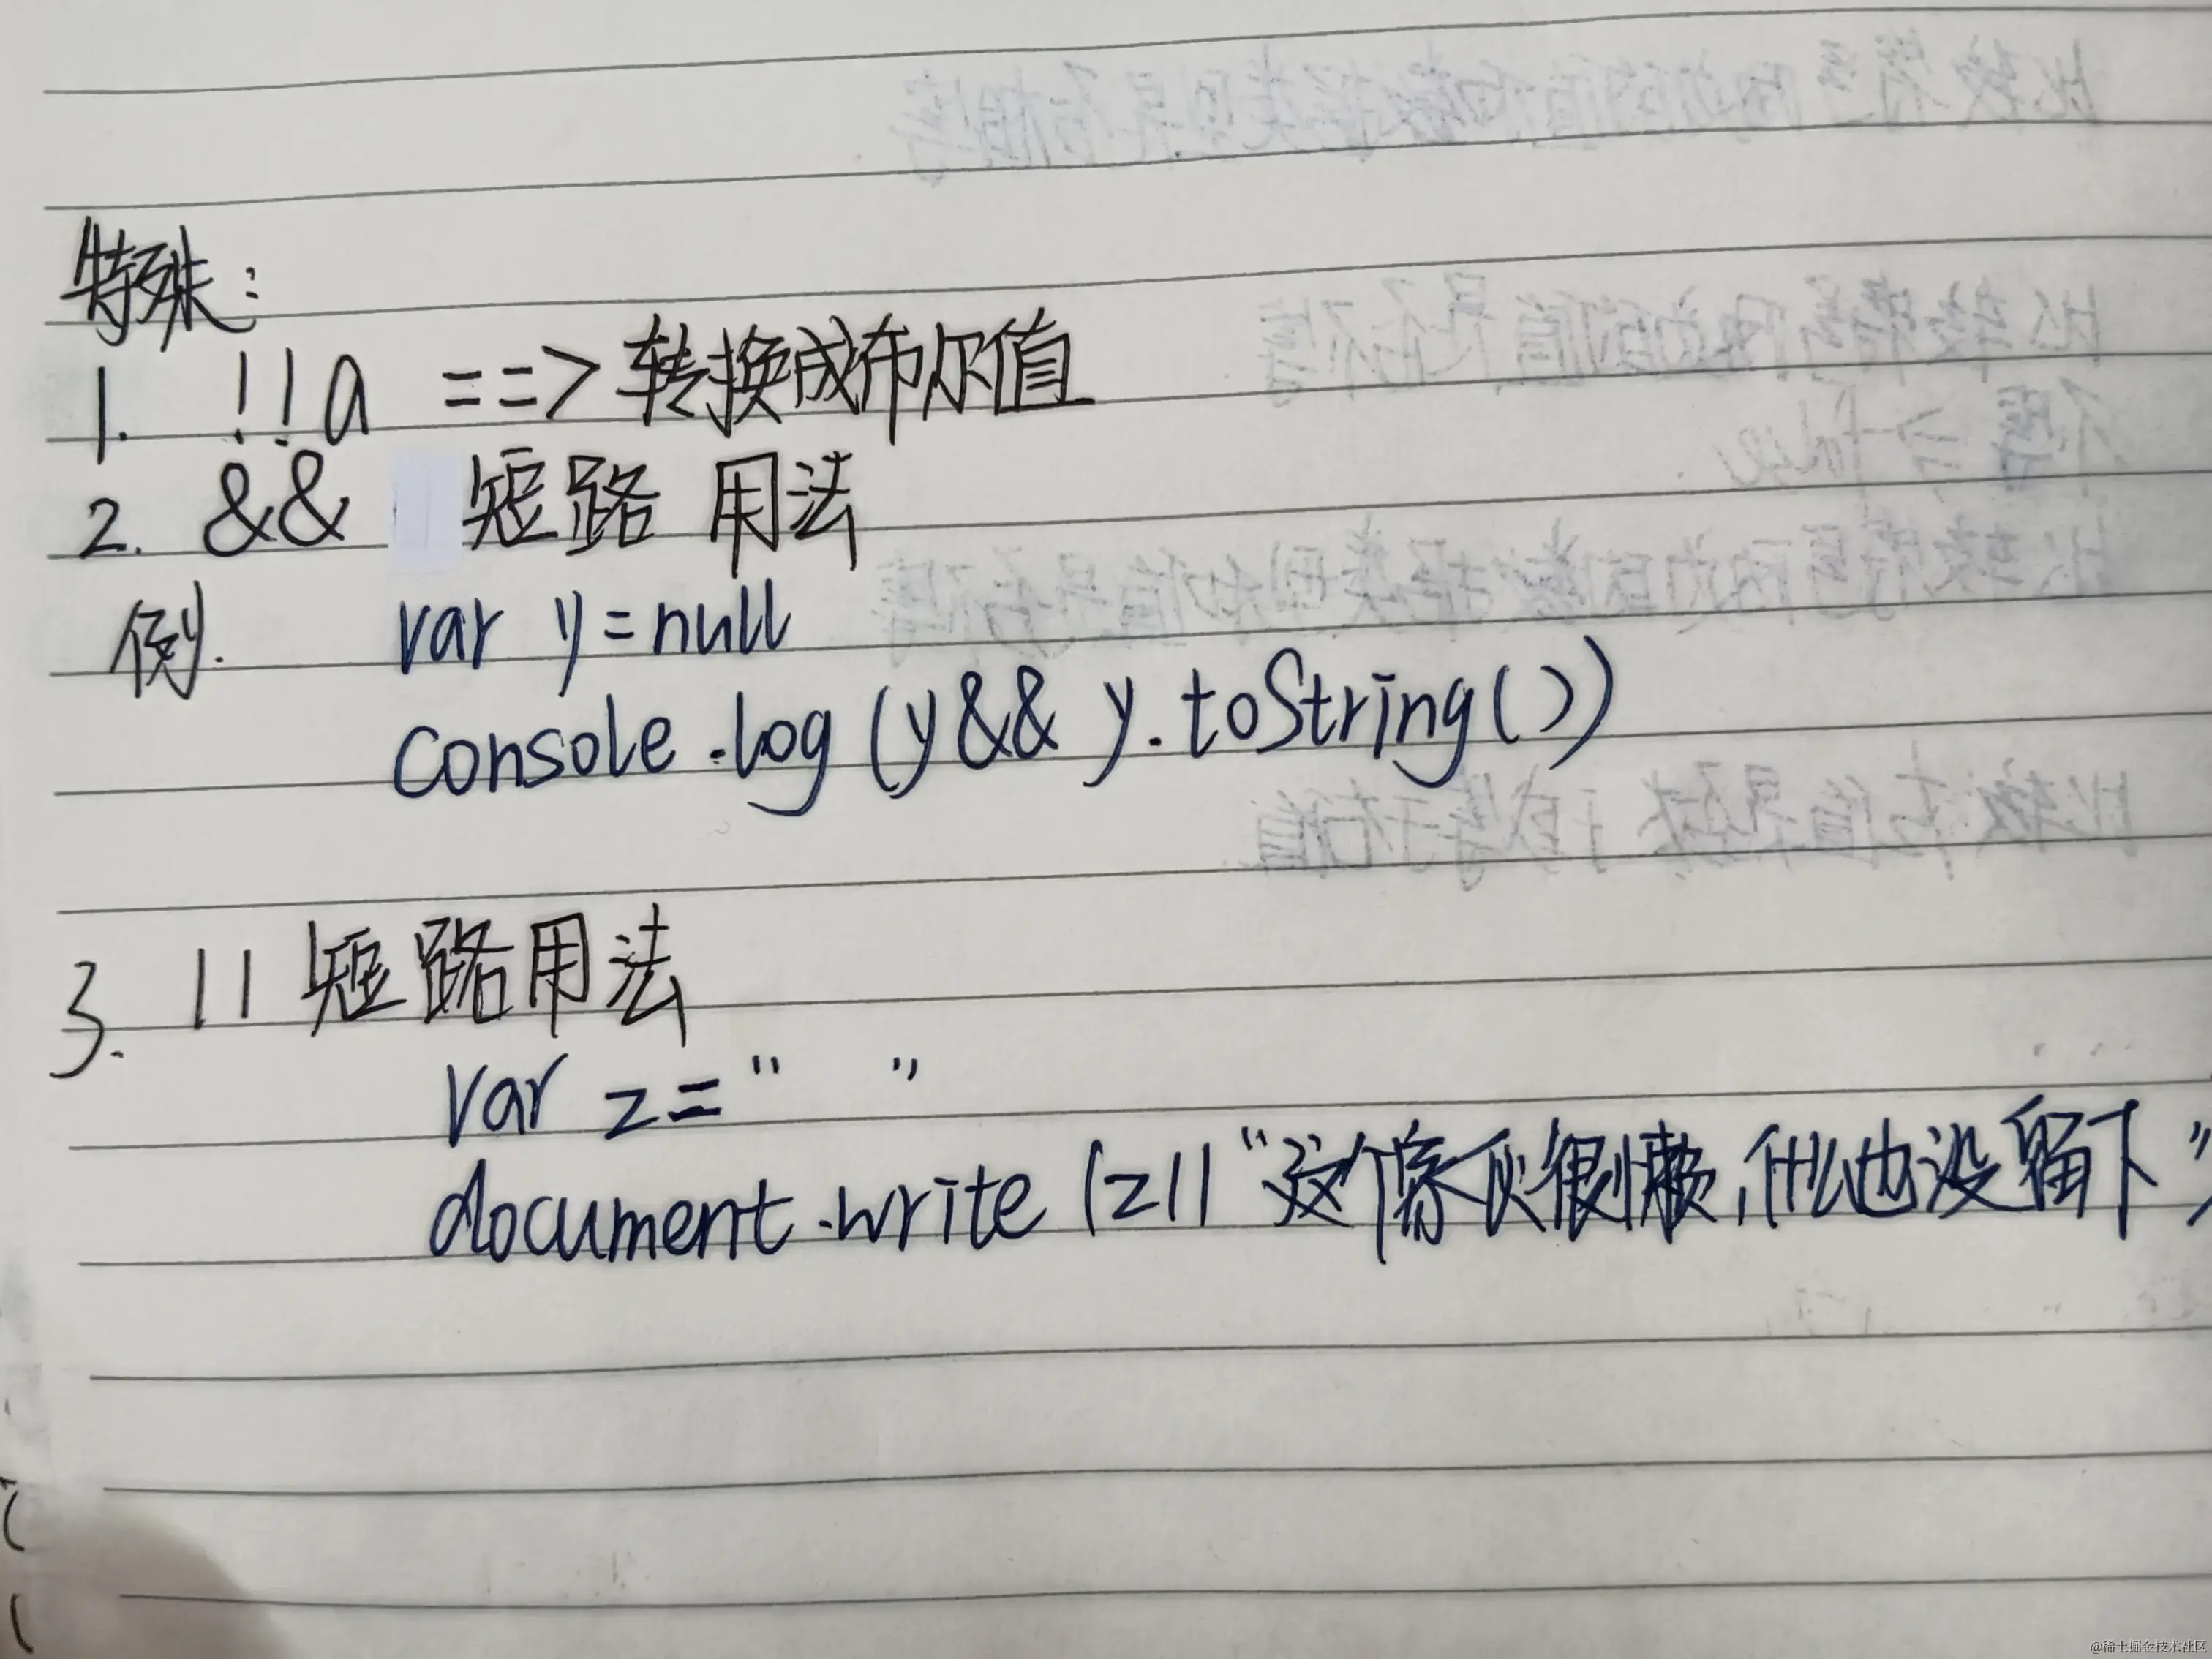 特殊:
1. !!a ==> 转换成布尔值
2. && 短路 用法
例. var y=null
console.log(y&& y.toString())
3. || 短路用法
var z="  "
document.write(z||"这个傢伙很懒,什么也没留下"
@稀土掘金技术社区